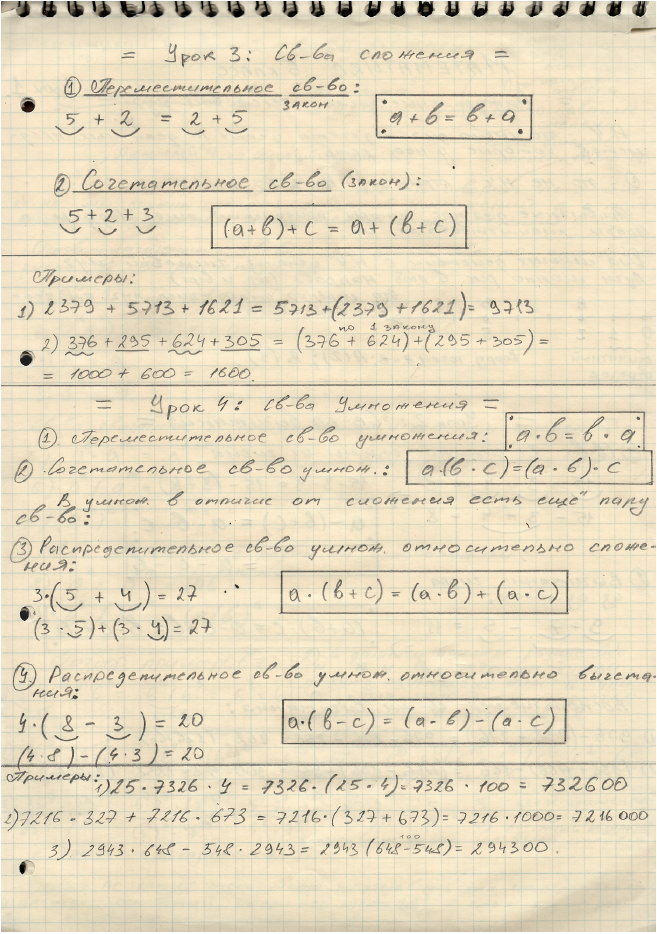 = Урок 3: Св-ва сложения =
① Переместительное св-во:
закон
5 + 2 = 2 + 5
a + b = b + a
② Сочетательное св-во (закон):
5 + 2 + 3
(a+b) + c = a + (b + c)
Примеры:
1) 2379 + 5713 + 1621 = 5713 + (2379 + 1621) = 9713
по 1 закону
2) 376 + 295 + 624 + 305 = (376 + 624) + (295 + 305) =
= 1000 + 600 = 1600.
= Урок 4: Св-ва Умножения =
① Переместительное св-во умножения:
a · b = b · a
② Сочетательное св-во умнож.:
a·(b · c) = (a · b) · c
В умнож. в отличие от сложения есть ещё пару
св-во:
③ Распределительное св-во умнож. относительно сложе-
ния:
3·(5 + 4) = 27
a · (b + c) = (a · b) + (a · c)
(3 · 5) + (3 · 4) = 27
④ Распределительное св-во умнож. относительно вычета-
ния:
4·(8 - 3) = 20
a·(b - c) = (a · b) - (a · c)
(4·8) - (4·3) = 20
Примеры:
1) 25 · 7326 · 4 = 7326 · (25 · 4) = 7326 · 100 = 732600
2) 7216 · 327 + 7216 · 673 = 7216·(327 + 673) = 7216 · 1000 = 7216000
100
3) 2943 · 648 - 548 · 2943 = 2943 (648 - 548) = 294300.